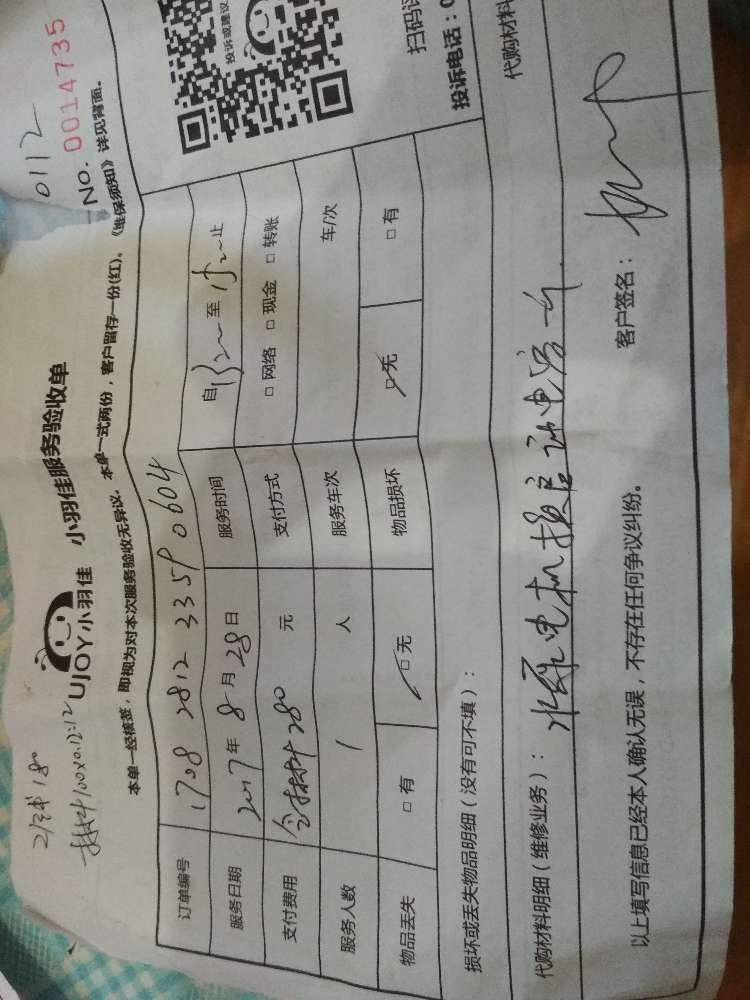 0112
NO. 0014735
UJOY小羽佳 小羽佳服务验收单
本单一经核签，即视为对本次服务验收无异议，本单一式两份，客户留存一份(红)。《维保须知》详见背面。
订单编号 1708 2812 3359 0604
服务日期 2017年8月28日 服务时间 自 至 止
支付费用 含材料280元 支付方式 □网络 □现金 □转账
服务人数 1人 服务车次 车/次
物品丢失 □有 □无 物品损坏 □无 □有
投诉或建议
扫码
投诉电话：0
损坏或丢失物品明细（没有可不填）：
代购材料明细（维修业务）： 水泵电机换启动电容 代购材料
以上填写信息已经本人确认无误，不存在任何争议纠纷。 客户签名：